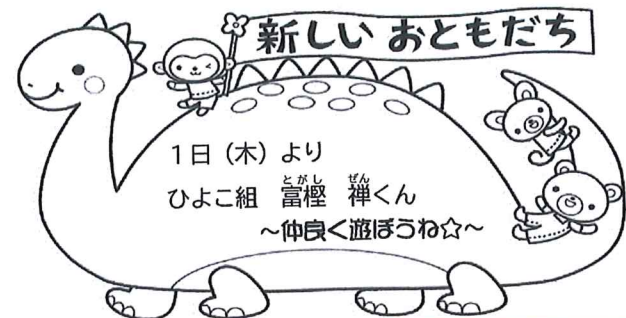 新しい おともだち
1日（木）より
ひよこ組 富樫 禅くん
とがし ぜん
～仲良く遊ぼうね☆～